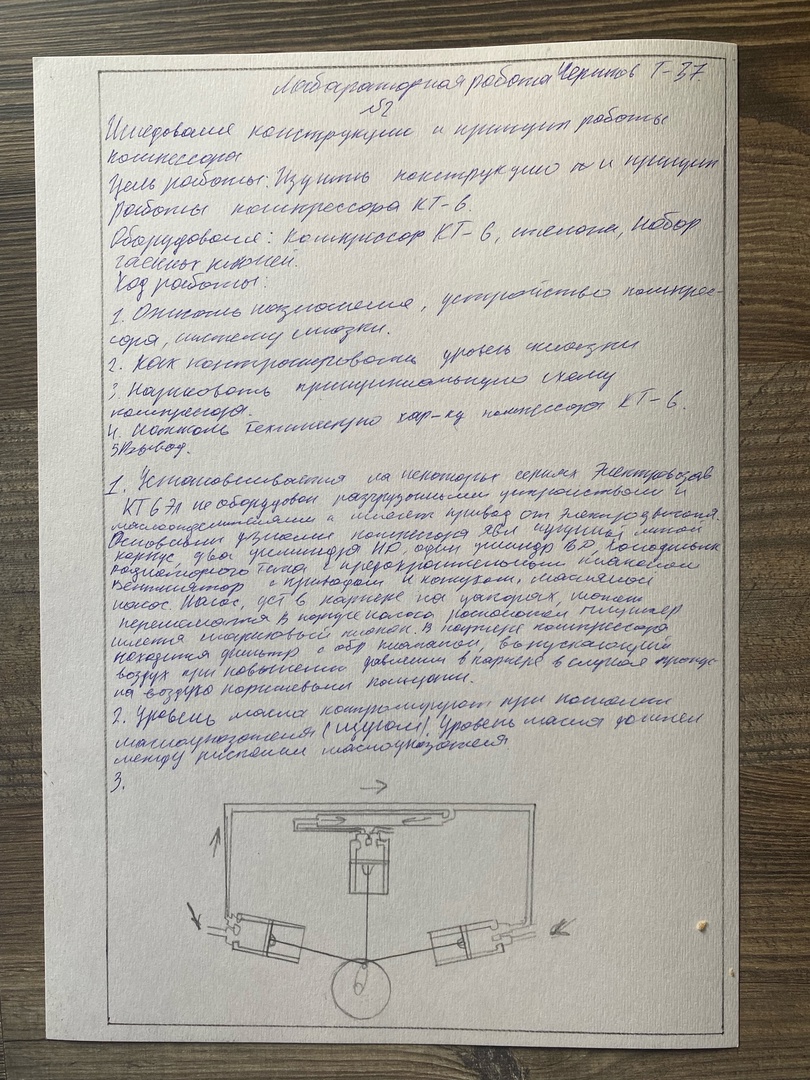 Лабораторная работа Черитов Т-37.
№2
Иследование конструкции и принцип работы
компессора
Цель работы: Изучить конструкцию и принцип
работы компрессора КТ-6.
Оборудование: Компрессор КТ-6, набор
гаечных ключей.
Ход работы:
1. Описать назначение, устройство компрес-
сора, систему смазки.
2. Как контролировать уровень смазки
3. Нарисовать принципиальную схему
компрессора.
4. Техническую хар-ку компрессора КТ-6.
5 Вывод.
1. Устанавливается на некоторых сериях Электровозов
КТ6 Эл не оборудован разгрузочными устройствами и
и имеет привод от Электродвигателя.
Основными узлами компрессора
корпус, два цилиндра НД, один цилиндр ВД, холодильник
радиаторного типа с предохранительным клапаном
вентилятор с приводом и кожухом, масляный
насос. Насос, уст в картере на может
перемещатся В корпусе насоса расположен плунжер
имеется шариковый клапан. В картере компрессора
находится фильтр с обр клапаном, выпускающий
воздух при повышении давления в картере в случае пропус-
ка воздуха поршневыми кольцами.
2. Уровень масла контролируют при помощи
маслоуказателя (щупом). Уровень масла должен
между рисками маслоуказателя
3.